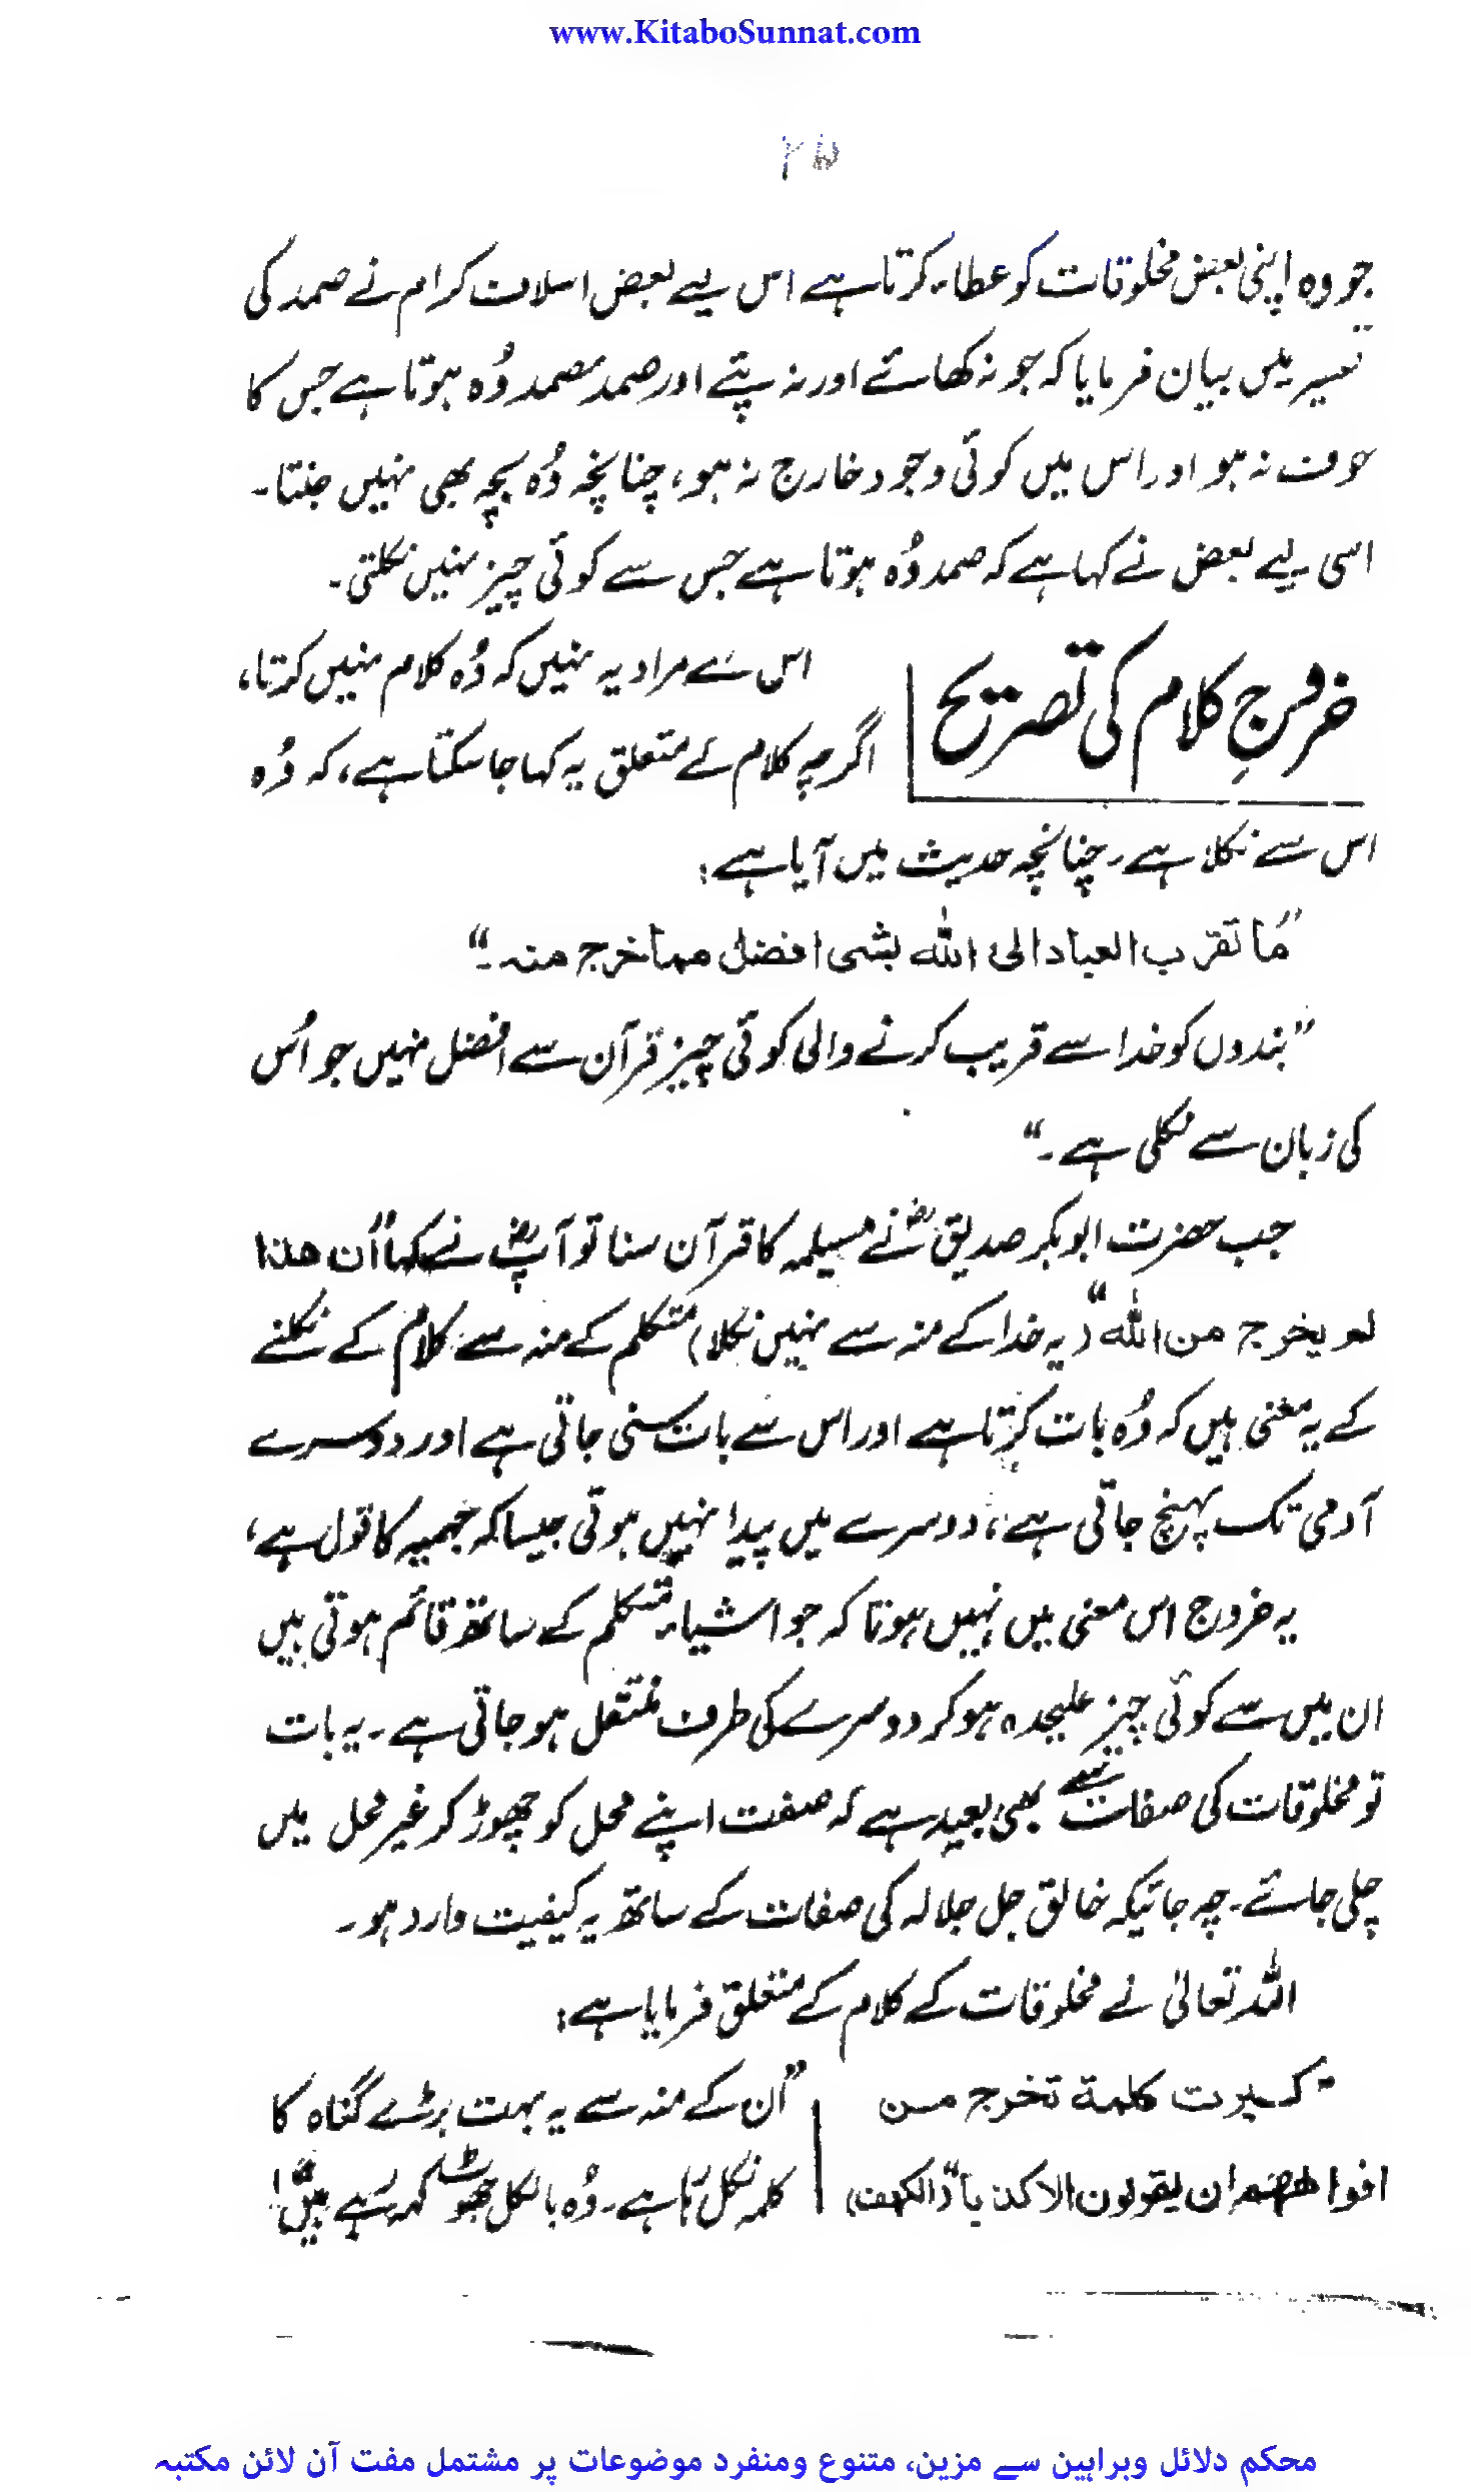 www.KitaboSunnat.com
۲۵
جو وہ اپنی بعض مخلوقات کو عطاء کرتا ہے اس لیے بعض اسلاف کرام نے صمد کی
تفسیر میں بیان فرمایا کہ جو نہ کھائے اور نہ پئے اور صمد مصمد وُہ ہوتا ہے جس کا
جوف نہ ہو اور اس میں کوئی وجود خارج نہ ہو، چنانچہ وُہ بچہ بھی نہیں جنتا۔
اسی لیے بعض نے کہا ہے کہ صمد وُہ ہوتا ہے جس سے کوئی چیز نہیں نکلتی۔
خروجِ کلام کی تصریح
اس سے مراد یہ نہیں کہ وُہ کلام نہیں کرتا،
اگرچہ کلام کے متعلق یہ کہا جا سکتا ہے، کہ وُہ
اس سے نکلا ہے۔ چنانچہ حدیث میں آیا ہے:
”ما تقرب العباد الی اللّٰہ بشی افضل مما خرج منہ۔“
”بندوں کو خدا سے قریب کرنے والی کوئی چیز قرآن سے افضل نہیں جو اُس
کی زبان سے نکلی ہے۔“
جب حضرت ابوبکر صدیقؓ نے مسیلمہ کا قرآن سنا تو آپؓ نے کہا ”ان ھذا
لم یخرج من اللّٰہ“ (یہ خدا کے منہ سے نہیں نکلا) متکلم کے منہ سے کلام کے نکلنے
کے یہ معنی ہیں کہ وُہ بات کرتا ہے اور اس سے بات سنی جاتی ہے اور دوسرے
آدمی تک پہنچ جاتی ہے، دوسرے میں پیدا نہیں ہوتی جیسا کہ جہمیہ کا قول ہے،
یہ خروج اس معنی میں نہیں ہوتا کہ جو اشیاء متکلم کے ساتھ قائم ہوتی ہیں
ان میں سے کوئی چیز علیحدہ ہو کر دوسرے کی طرف منتقل ہو جاتی ہے۔ یہ بات
تو مخلوقات کی صفات سے بھی بعید ہے کہ صفت اپنے محل کو چھوڑ کر غیر محل میں
چلی جائے۔ چہ جائیکہ خالق جل جلالہ کی صفات کے ساتھ یہ کیفیت وارد ہو۔
اللہ تعالیٰ نے مخلوقات کے کلام کے متعلق فرمایا ہے:
”کبرت کلمة تخرج من
افواھھم ان یقولون الا کذبا“ (الکہف)
”اُن کے منہ سے یہ بہت بڑے گناہ کا
کلمہ نکل رہا ہے۔ وُہ بالکل جھوٹ کہہ رہے ہیں“
محکم دلائل وبراہین سے مزین، متنوع ومنفرد موضوعات پر مشتمل مفت آن لائن مکتبہ